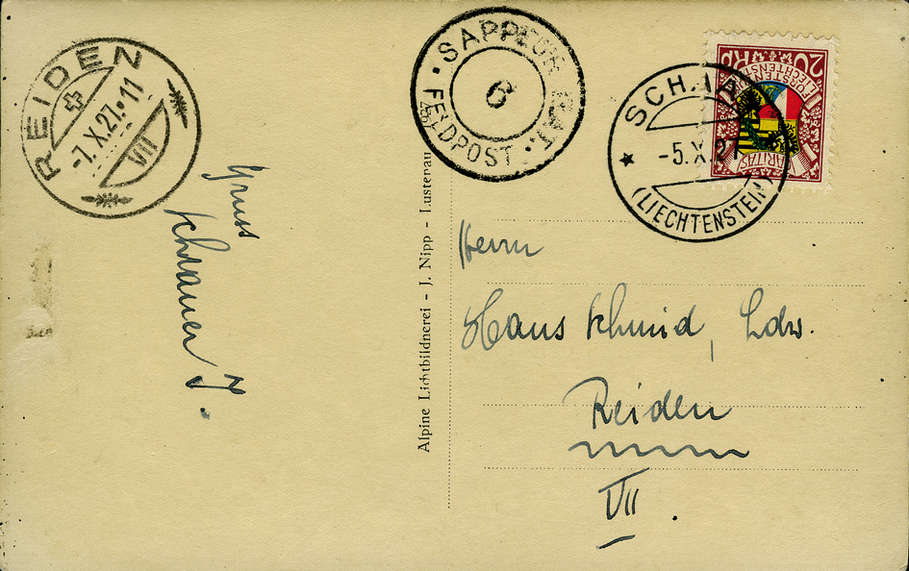 REIDEN
-7.X.27.11
VII
SAPPEUR BAT.
6
FELDPOST
20 Rp
FÜRSTENTUM
LIECHTENSTEIN
CARITAS
SCHAAN
-5.X.27
(LIECHTENSTEIN)
Gruss
J.
Alpine Lichtbildnerei - J. Nipp - Lustenau
Herrn
Hans Schmid, Ldw.
Reiden
VII.